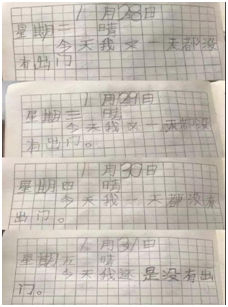 11月28日
星期二 晴
今天我又一天都没
有出门
11月29日
星期三 晴
今天我又一天都没
有出门。
11月30日
星期四 晴
今天我一天都没有
出门。
月31日
星期五 晴
今天我还是没有出
门。